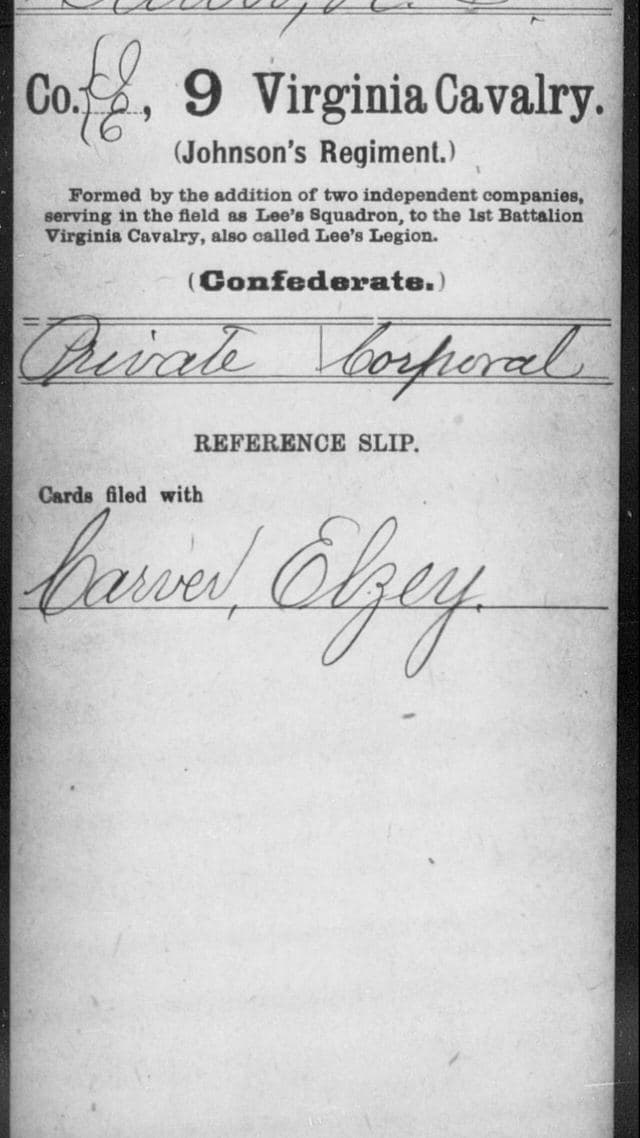 Co. E, 9 Virginia Cavalry.
(Johnson's Regiment.)
Formed by the addition of two independent companies,
serving in the field as Lee's Squadron, to the 1st Battalion
Virginia Cavalry, also called Lee's Legion.
(Confederate.)
Private | Corporal
REFERENCE SLIP.
Cards filed with
Carver, Elzey.